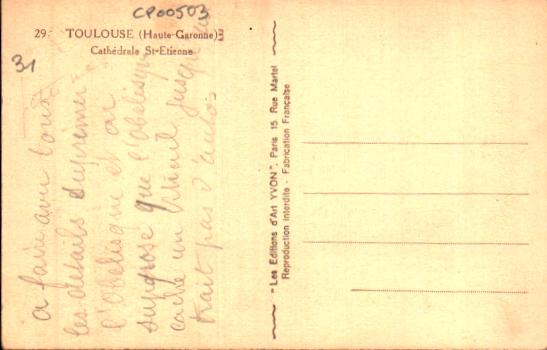 CP00503
29. TOULOUSE (Haute-Garonne)
Cathédrale St-Etienne
31
a faire avec tous
les détails Supprimer
l'Obélisque et on
suppose que l'Obélisque
cache un vitrail jusque
trait pas d'
"Les Editions d'Art YVON", Paris 15 Rue Martel
Reproduction Interdite - Fabrication Française